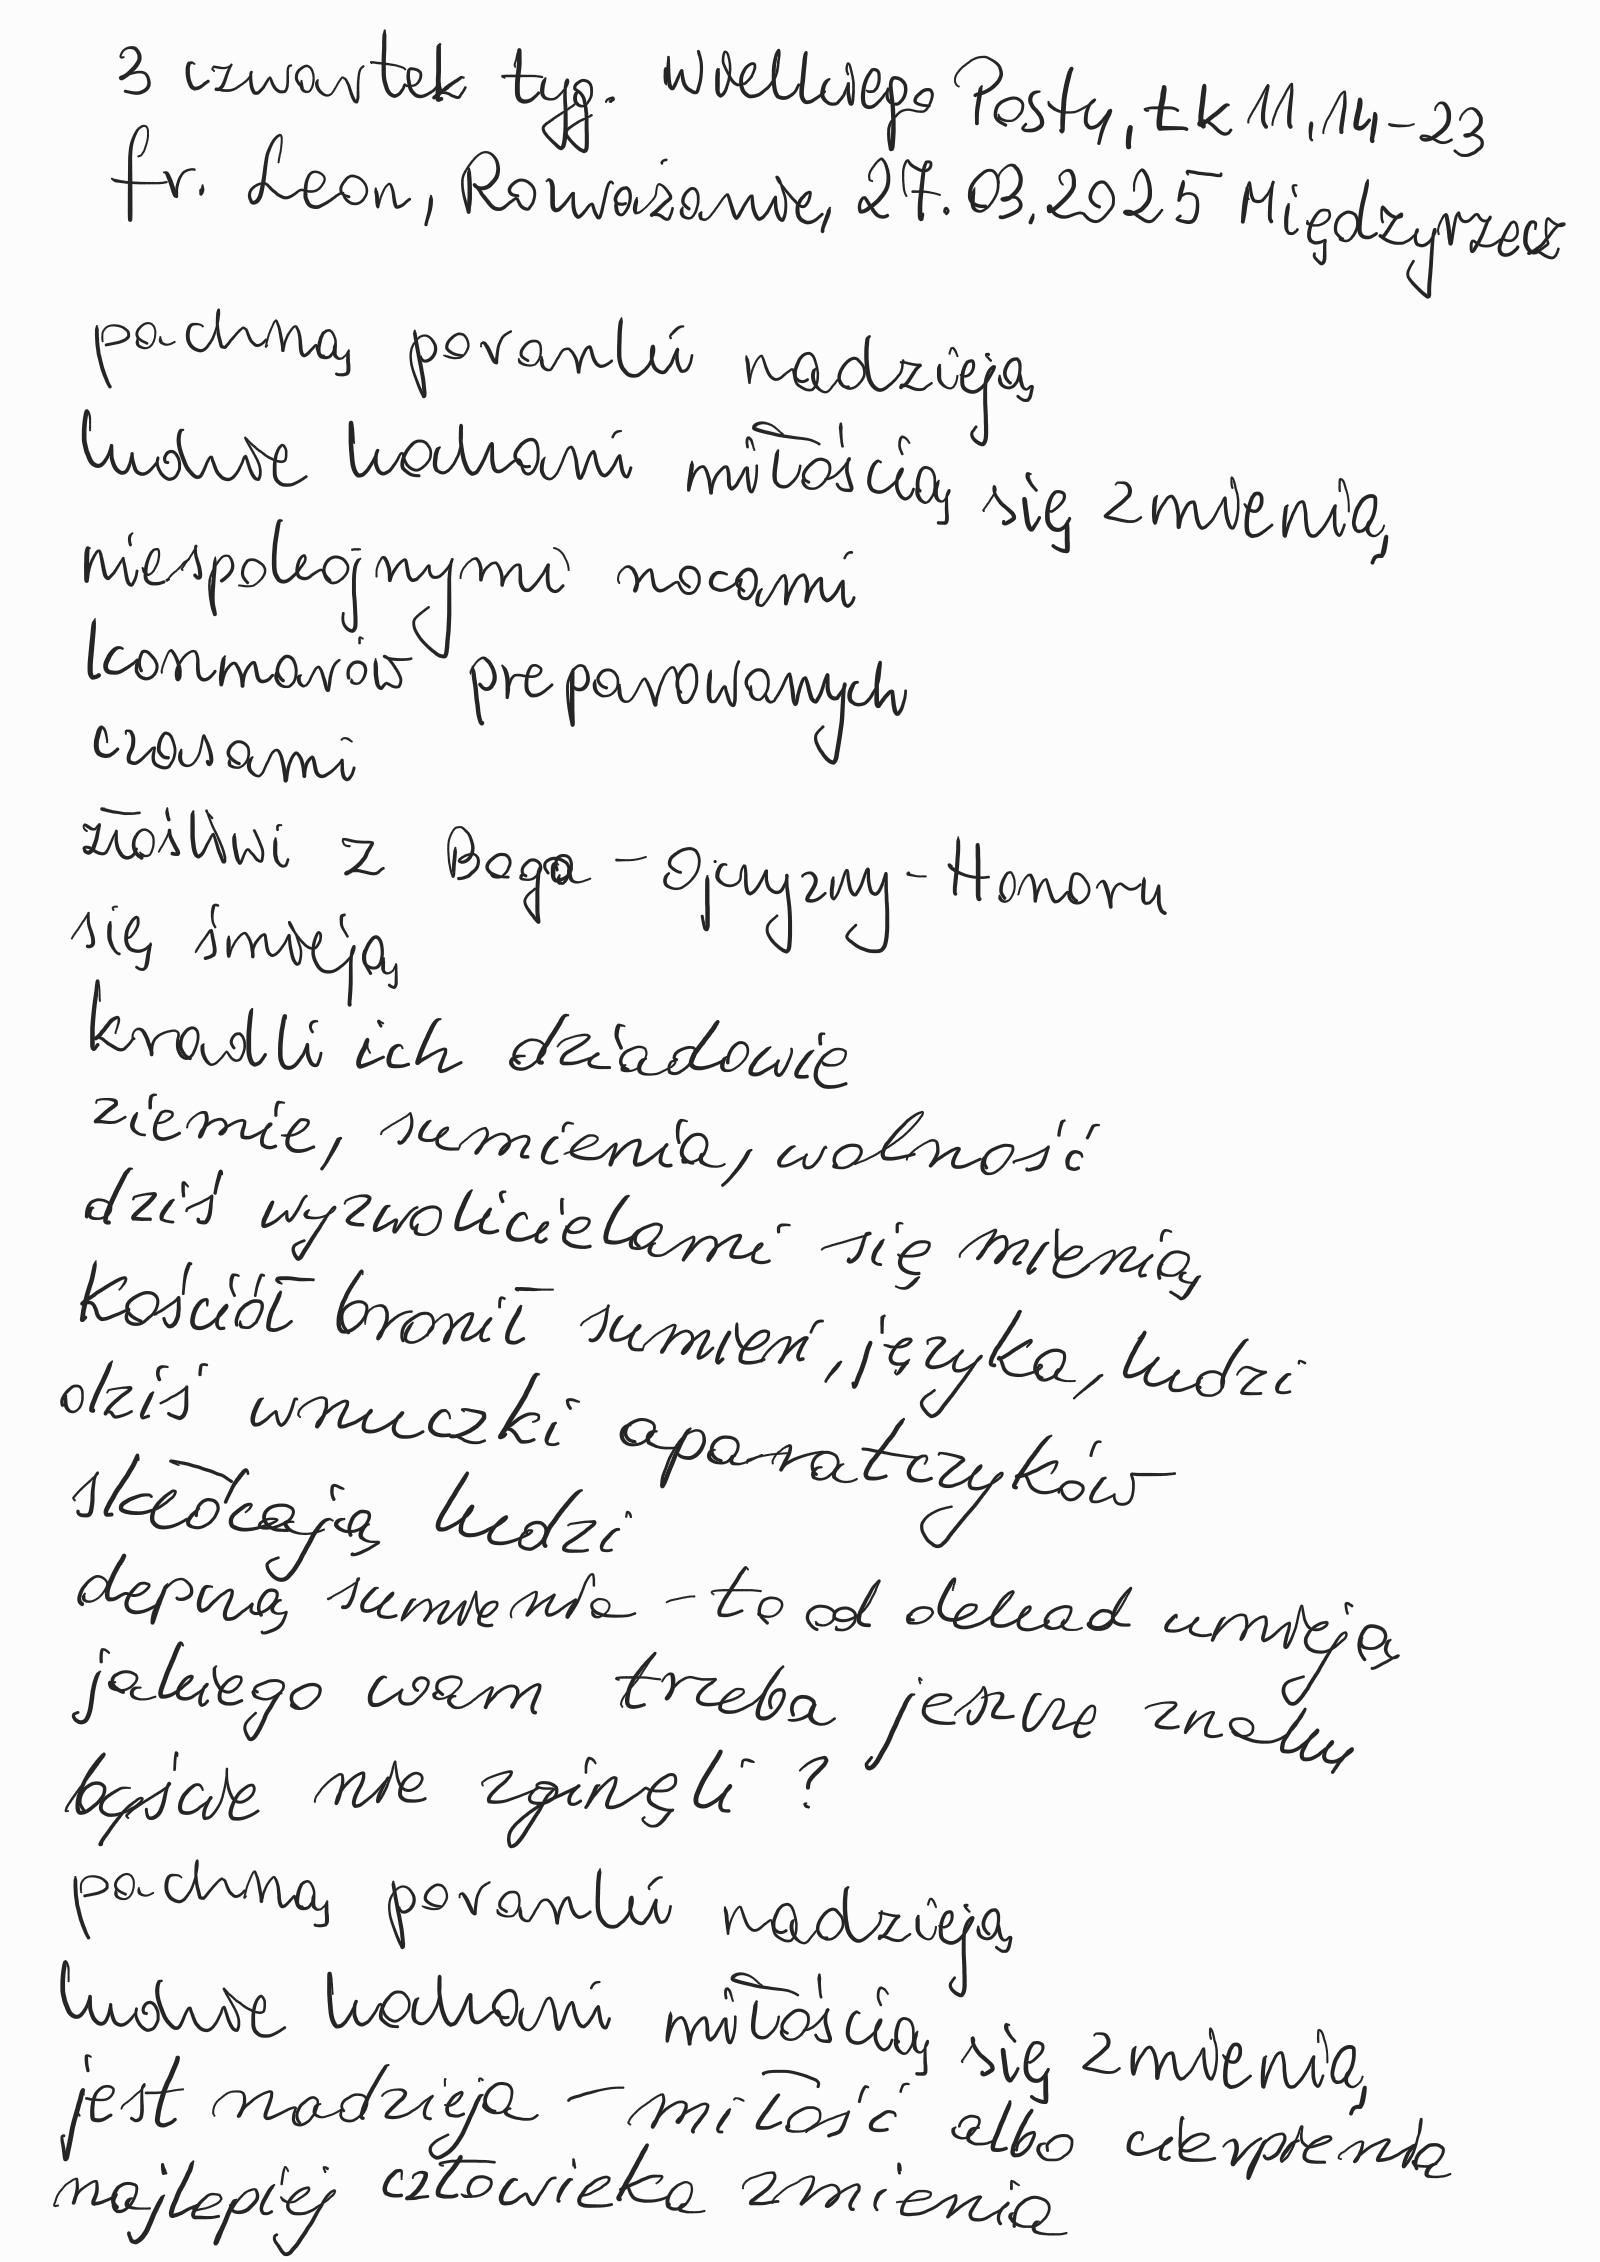 3 czwartek tyg. Wielkiego Postu, Łk 11, 14-23
fr. Leon, Rozważanie, 27.03.2025 Międzyrzecz
pachną poranki nadzieją
ludzie kochani miłością się zmienią
niespokojnymi nocami
konmarów preparowanych
czasami
złośliwi z Boga - Ojczyzny - Honoru
się śmieją
kradli ich dziadowie
ziemie, sumienia, wolność
dziś wyzwolicielami się mienią
kościół bronił sumień, języka, ludzi
dziś wnuczki aparatczyków
skłócają ludzi
depczą sumienia - to od dekad umieją
jakiego wam trzeba jeszcze znaku
byście nie zginęli ?
pachną poranki nadzieją
ludzie kochani miłością się zmienią
jest nadzieja - miłość albo cierpienia
najlepiej człowieka zmienia